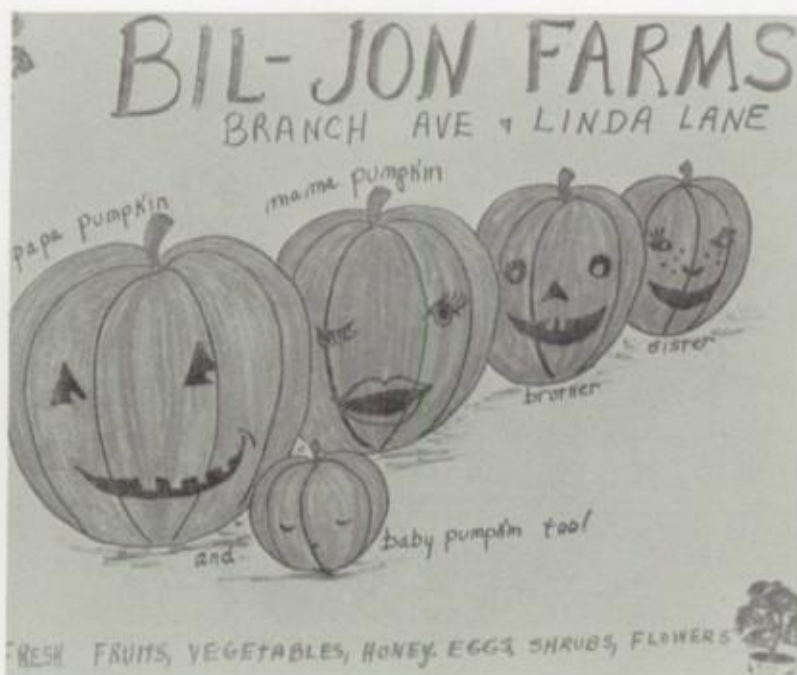 BIL-JON FARMS
BRANCH AVE & LINDA LANE
papa pumpkin
mama pumpkin
brother
sister
and
baby pumpkin too!
FRESH FRUITS, VEGETABLES, HONEY, EGGS, SHRUBS, FLOWERS